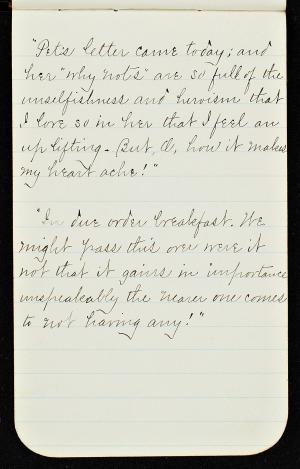 "Pet's letter came today; and
her "why nots" are so full of the
unselfishness and heroism that
I love so in her that I feel an
up lifting. But, O, how it makes
my heart ache!"
"In due order breakfast. We
might pass this over were it
not that it gains in importance
unspeakably the nearer one comes
to not having any!"